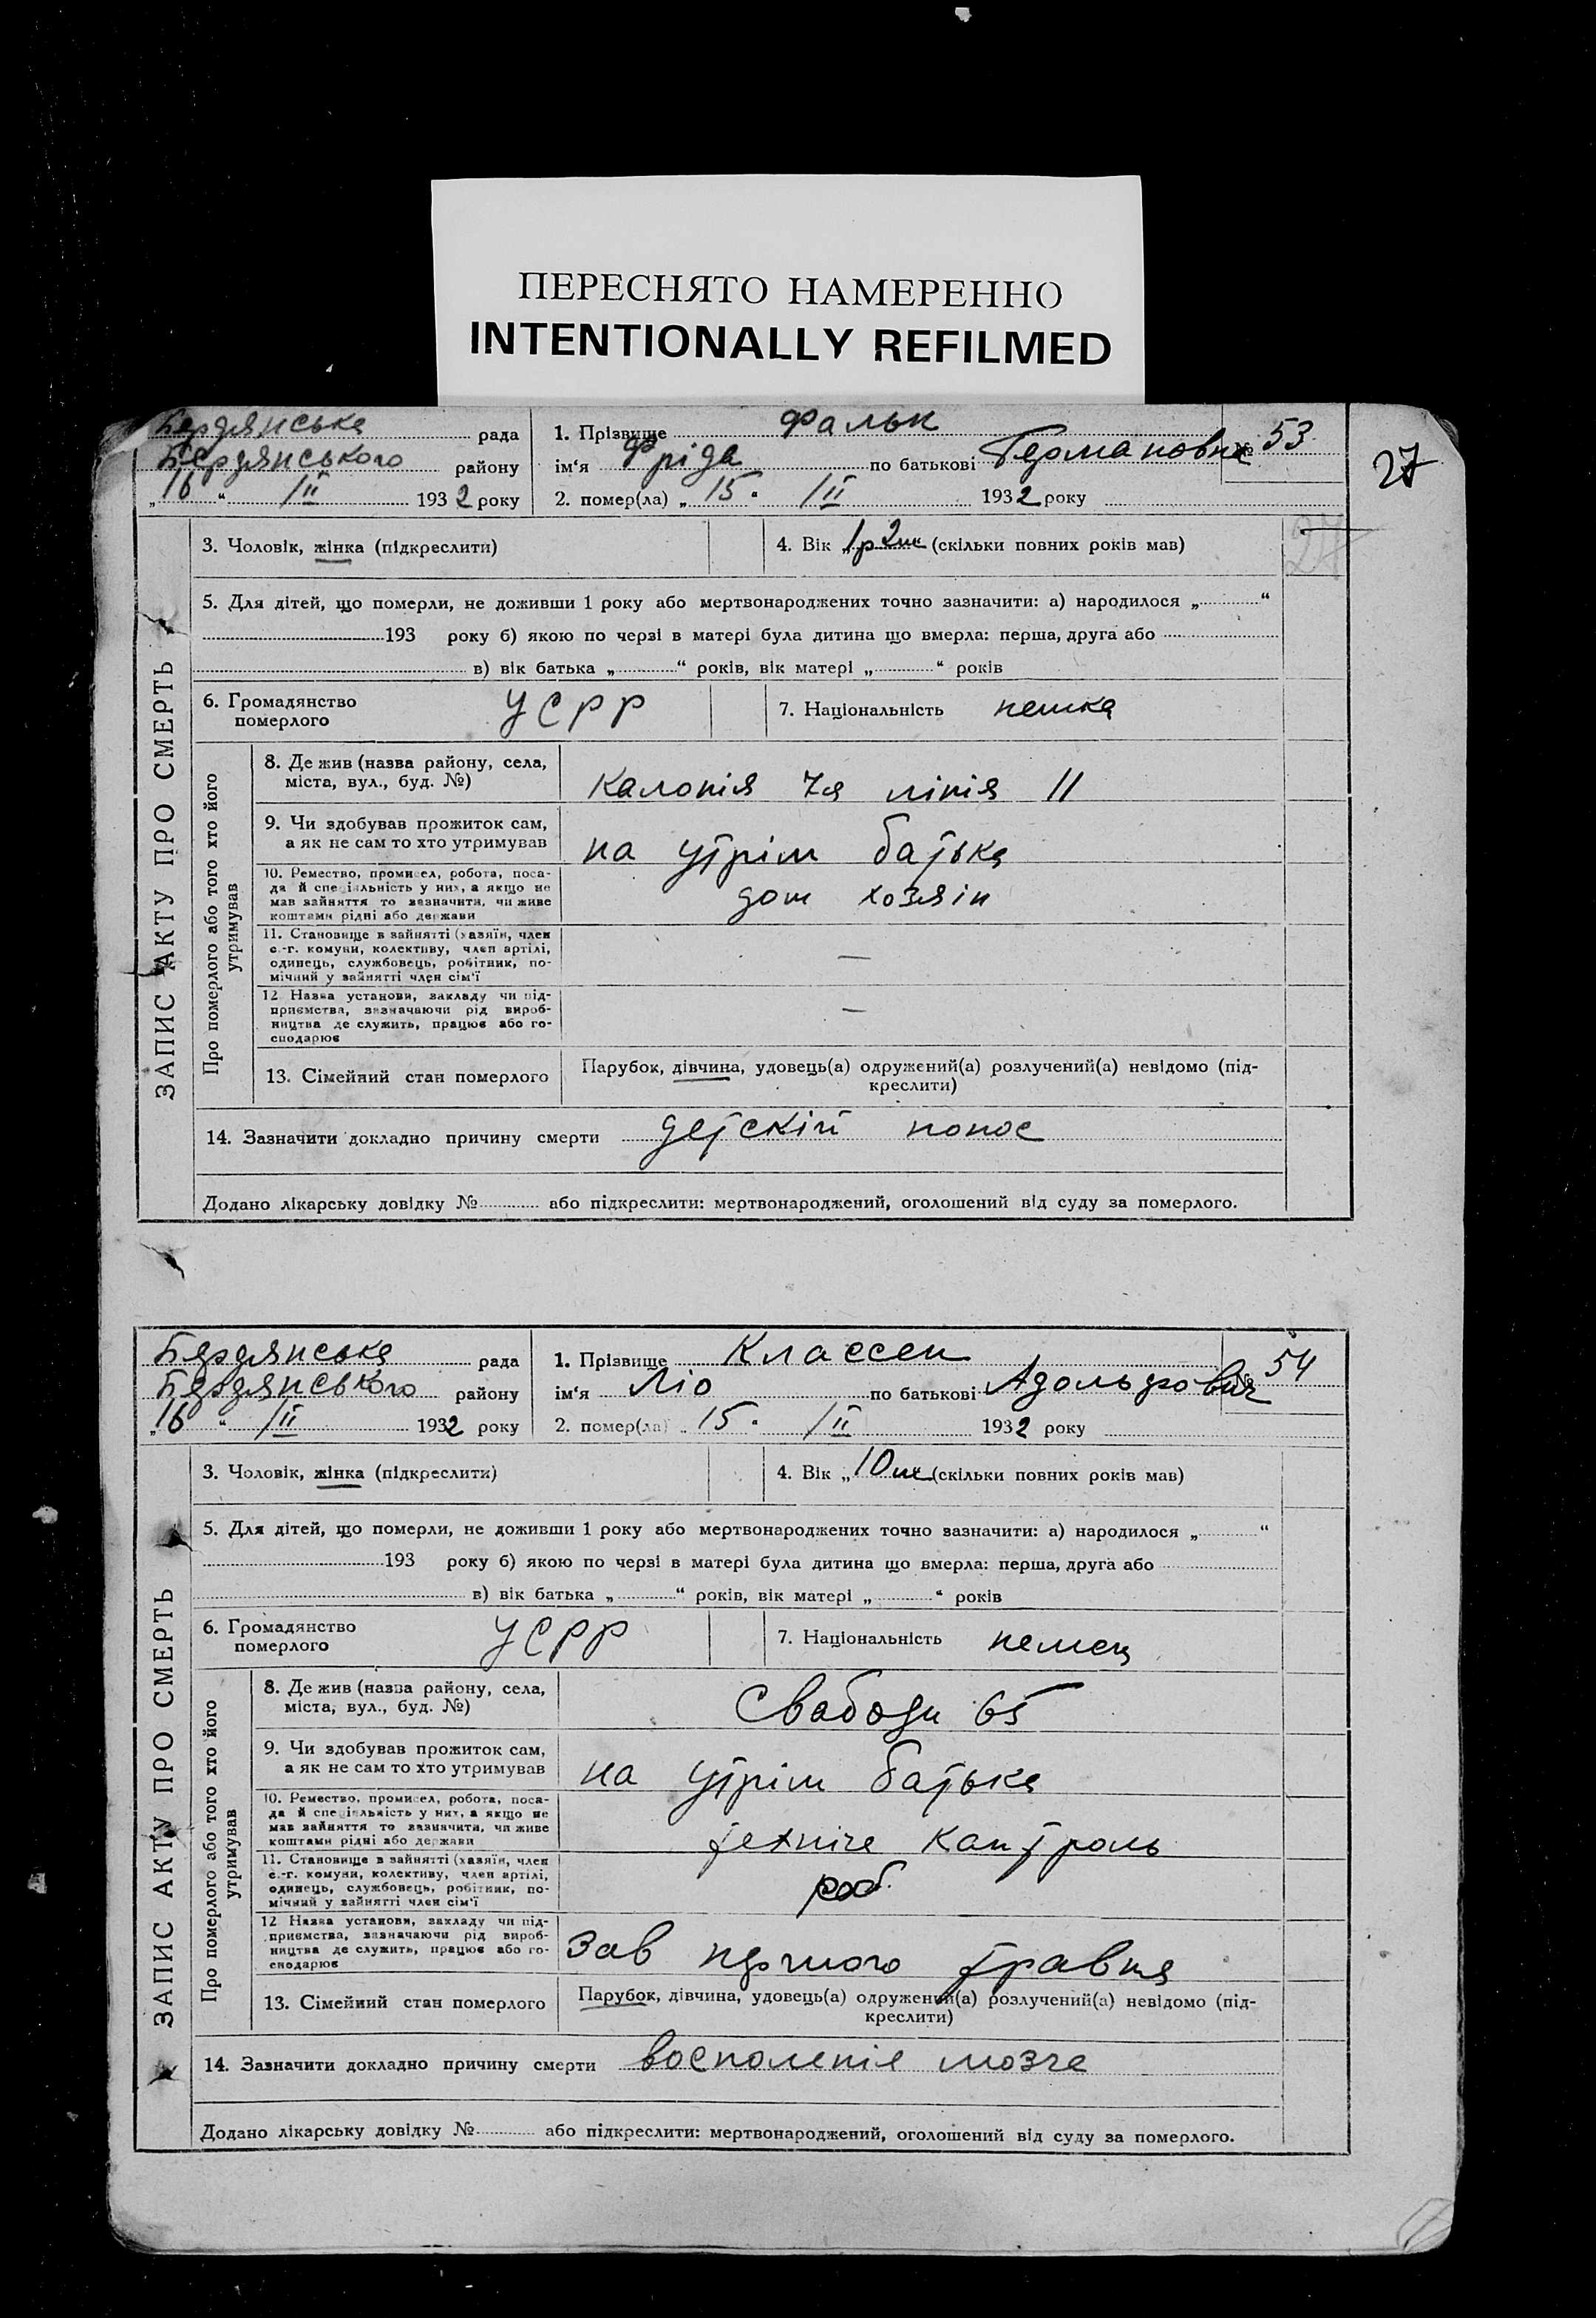 ПЕРЕСНЯТО НАМЕРЕННО
INTENTIONALLY REFILMED
27
Бердянська рада
Бердянського району
„16“ /II 1932 року
1. Прізвище Фальк
ім‘я Фріда по батькові Германовна
№ 53
2. помер(ла) „15“ /II 1932 року
27
ЗАПИС АКТУ ПРО СМЕРТЬ
3. Чоловік, жінка (підкреслити)
4. Вік „1р 2м (скільки повних років мав)
5. Для дітей, що померли, не доживши 1 року або мертвонароджених точно зазначити: а) народилося „ “
193 року б) якою по черзі в матері була дитина що вмерла: перша, друга або
в) вік батька „ “ років, вік матері „ “ років
6. Громадянство
померлого
УСРР
7. Національність немка
Про померлого або того хто його
утримував
8. Де жив (назва району, села,
міста, вул., буд. №)
Калонія 7я лінія 11
9. Чи здобував прожиток сам,
а як не сам то хто утримував
на утрім батька
10. Ремество, промисел, робота, поса-
да й спеціяльність у них, а якщо не
мав зайняття то зазначити, чи живе
коштами рідні або держави
дом хозяін
11. Становище в зайнятті (хазяїн, член
с.-г. комуни, колективу, член артілі,
одинець, службовець, робітник, по-
мічний у зайнятті член сім‘ї
—
12 Назва установи, закладу чи під-
приємства, зазначаючи рід вироб-
ництва де служить, працює або го-
сподарює
—
13. Сімейний стан померлого
Парубок, дівчина, удовець(а) одружений(а) розлучений(а) невідомо (під-
креслити)
14. Зазначити докладно причину смерти детскій понос
Додано лікарську довідку № або підкреслити: мертвонароджений, оголошений від суду за померлого.
Бердянська рада
Бердянського району
„16“ /II 1932 року
1. Прізвище Классен
ім‘я Ліо по батькові Адольфович
№ 54
2. помер(ла) „15“ /II 1932 року
ЗАПИС АКТУ ПРО СМЕРТЬ
3. Чоловік, жінка (підкреслити)
4. Вік „10м (скільки повних років мав)
5. Для дітей, що померли, не доживши 1 року або мертвонароджених точно зазначити: а) народилося „ “
193 року б) якою по черзі в матері була дитина що вмерла: перша, друга або
в) вік батька „ “ років, вік матері „ “ років
6. Громадянство
померлого
УСРР
7. Національність немец
Про померлого або того хто його
утримував
8. Де жив (назва району, села,
міста, вул., буд. №)
Свабоди 65
9. Чи здобував прожиток сам,
а як не сам то хто утримував
на утрім батька
10. Ремество, промисел, робота, поса-
да й спеціяльність у них, а якщо не
мав зайняття то зазначити, чи живе
коштами рідні або держави
контроль
11. Становище в зайнятті (хазяїн, член
с.-г. комуни, колективу, член артілі,
одинець, службовець, робітник, по-
мічний у зайнятті член сім‘ї
роб.
12 Назва установи, закладу чи під-
приємства, зазначаючи рід вироб-
ництва де служить, працює або го-
сподарює
Зав першого травня
13. Сімейний стан померлого
Парубок, дівчина, удовець(а) одружений(а) розлучений(а) невідомо (під-
креслити)
14. Зазначити докладно причину смерти воспаленіе мозга
Додано лікарську довідку № або підкреслити: мертвонароджений, оголошений від суду за померлого.